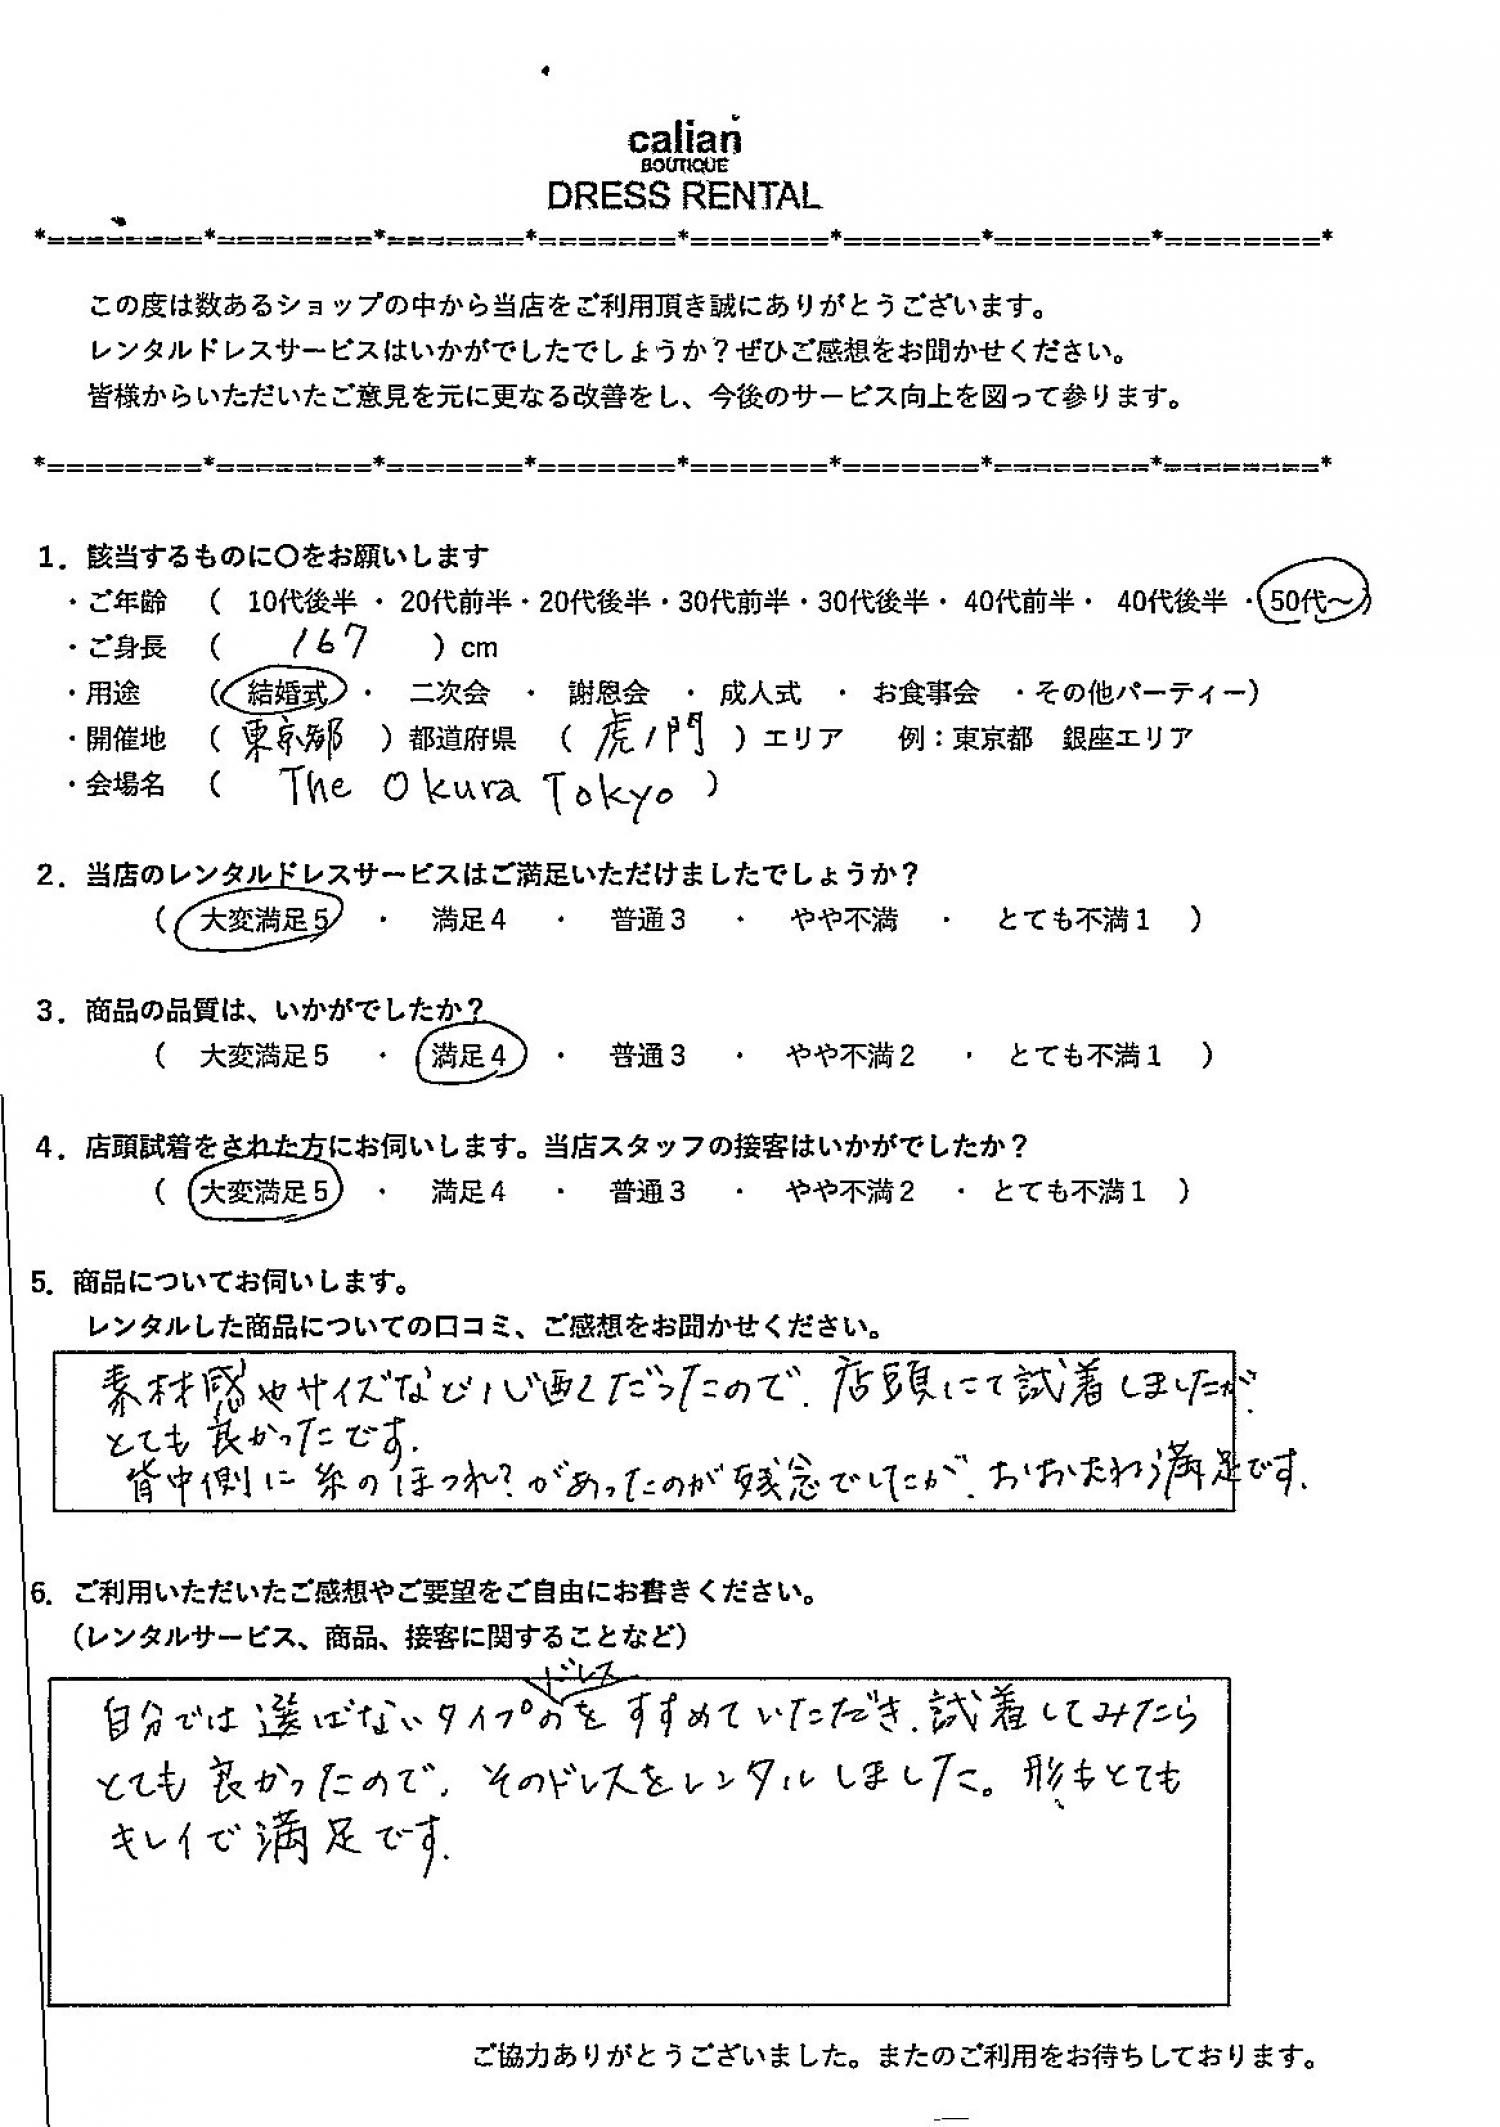 calian
BOUTIQUE
DRESS RENTAL
*========*========*=======*=======*=======*=======*========*========*
この度は数あるショップの中から当店をご利用頂き誠にありがとうございます。
レンタルドレスサービスはいかがでしたでしょうか？ぜひご感想をお聞かせください。
皆様からいただいたご意見を元に更なる改善をし、今後のサービス向上を図って参ります。
*========*========*=======*=======*=======*=======*========*========*
1．該当するものに〇をお願いします
・ご年齢 （ 10代後半 ・ 20代前半・20代後半・30代前半・30代後半・ 40代前半・ 40代後半 ・50代～）
・ご身長 （ 167 ）cm
・用途 （ 結婚式 ・ 二次会 ・ 謝恩会 ・ 成人式 ・ お食事会 ・その他パーティー）
・開催地 （ 東京都 ）都道府県 （ 虎ノ門 ）エリア 例：東京都 銀座エリア
・会場名 （ The Okura Tokyo ）
2．当店のレンタルドレスサービスはご満足いただけましたでしょうか？
（ 大変満足５ ・ 満足４ ・ 普通３ ・ やや不満 ・ とても不満１ ）
3．商品の品質は、いかがでしたか？
（ 大変満足５ ・ 満足４ ・ 普通３ ・ やや不満２ ・ とても不満１ ）
4．店頭試着をされた方にお伺いします。当店スタッフの接客はいかがでしたか？
（ 大変満足５ ・ 満足４ ・ 普通３ ・ やや不満２ ・ とても不満１ ）
5．商品についてお伺いします。
レンタルした商品についての口コミ、ご感想をお聞かせください。
素材感やサイズなど心配だったので、店頭にて試着しましたが、
とても良かったです。
背中側に糸のほつれ？があったのが残念でしたが、おおむね満足です。
6．ご利用いただいたご感想やご要望をご自由にお書きください。
（レンタルサービス、商品、接客に関することなど）
自分では選ばないタイプのドレスをすすめていただき、試着してみたら
とても良かったので、そのドレスをレンタルしました。形もとても
キレイで満足です。
ご協力ありがとうございました。またのご利用をお待ちしております。